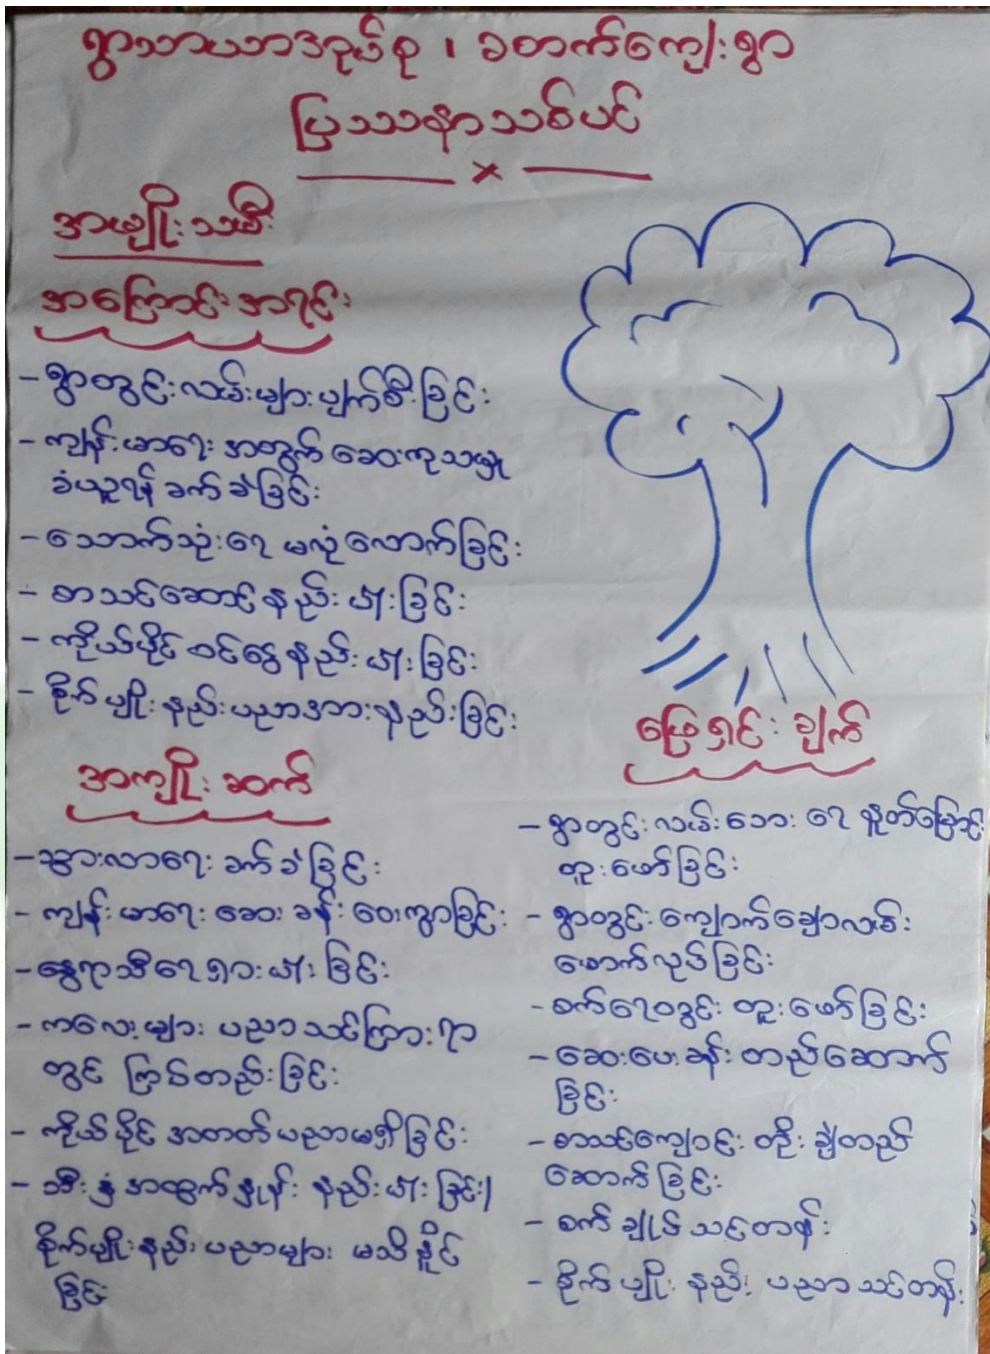 ရွာသာယာအုပ်စု ၊ ခတက်ကျေးရွာ
ပြဿနာသစ်ပင်
အမျိုးသမီး
အကြောင်းအရင်း
- ရွာတွင်းလမ်းများပျက်စီးခြင်း
- ကျန်းမာရေးအတွက် ဆေးကုသမှု
ခံယူရန် ခက်ခဲခြင်း
- သောက်သုံးရေ မလုံလောက်ခြင်း
- စာသင်ဆောင်နည်းပါးခြင်း
- ကိုယ်ပိုင်ဝင်ငွေနည်းပါးခြင်း
- စိုက်ပျိုးနည်းပညာအားနည်းခြင်း
အကျိုးဆက်
- သွားလာရေးခက်ခဲခြင်း
- ကျန်းမာရေးဆေးခန်းဝေးကွာခြင်း
- နွေရာသီရေရှားပါးခြင်း
- ကလေးများ ပညာသင်ကြားရာ
တွင် ကြပ်တည်းခြင်း
- ကိုယ်ပိုင် အတတ်ပညာမရှိခြင်း
- သီးနှံအထွက်နှုန်း နည်းပါးခြင်း/
စိုက်ပျိုးနည်းပညာများ မသိနိုင်
ခြင်း
ဖြေရှင်းချက်
- ရွာတွင်းလမ်းဘေး ရေနှုတ်မြောင်း
တူးဖော်ခြင်း
- ရွာတွင်းကျောက်ချောလမ်း
ဖောက်လုပ်ခြင်း
- စက်ရေတွင်းတူးဖော်ခြင်း
- ဆေးပေးခန်းတည်ဆောက်
ခြင်း
- စာသင်ကျောင်း တိုးချဲ့တည်
ဆောက်ခြင်း
- စက်ချုပ်သင်တန်း
- စိုက်ပျိုးနည်းပညာသင်တန်း